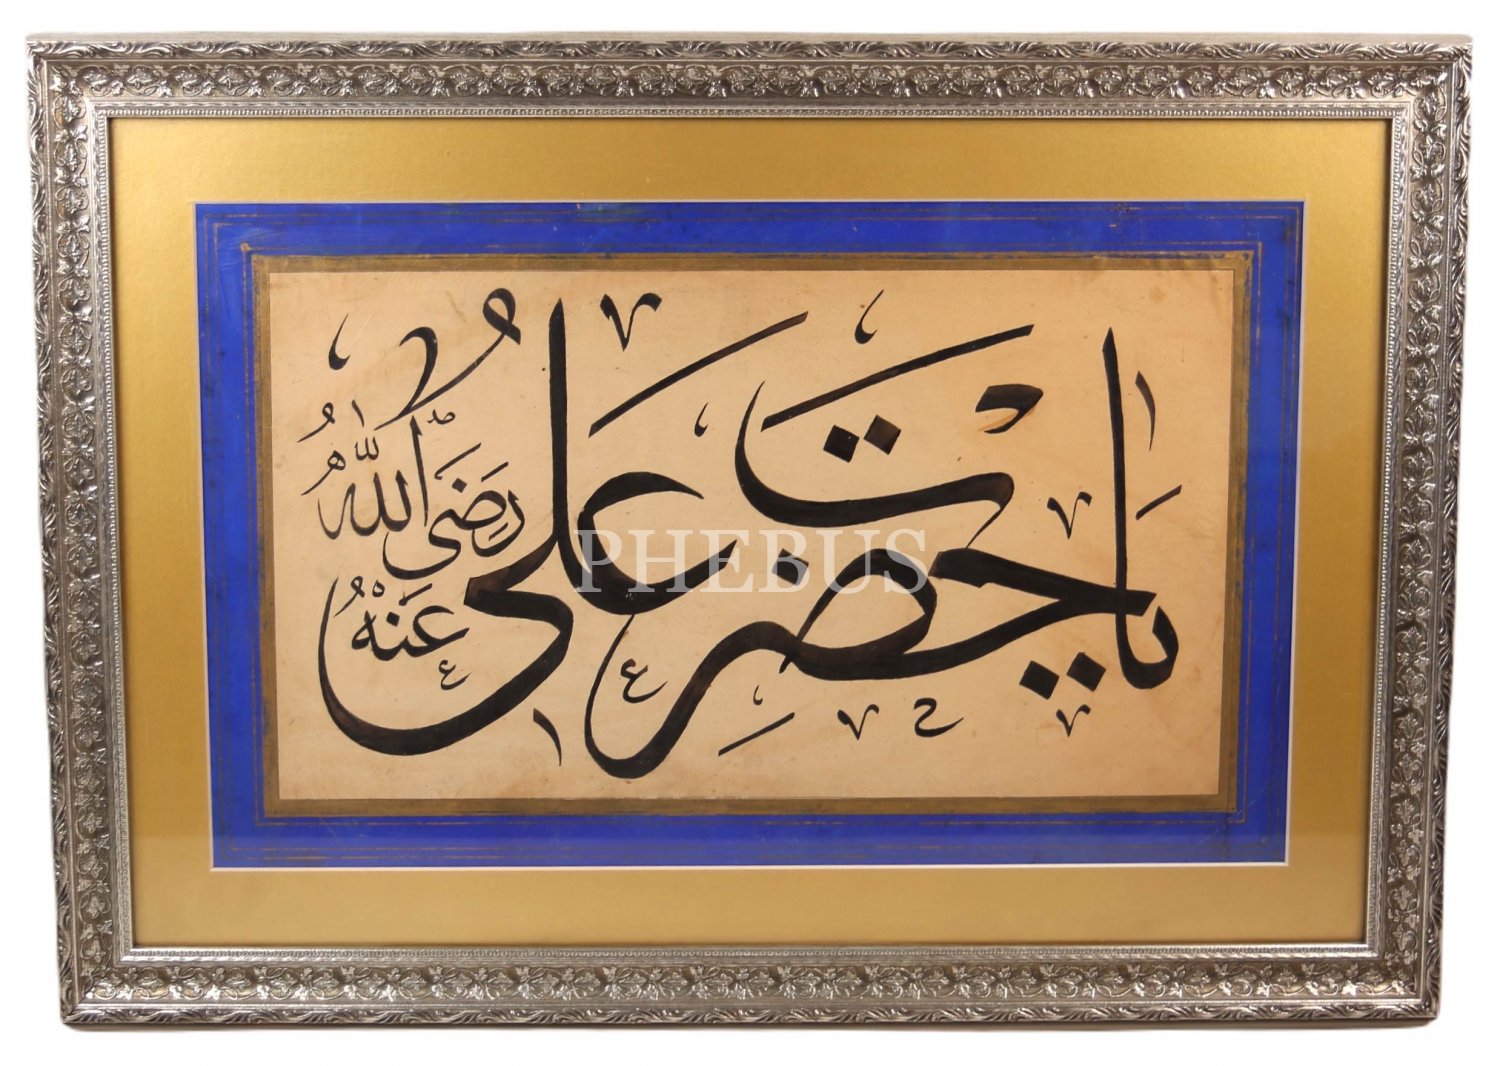 يا حضرت علي
رَضِىَ اللهُ
عَنْهُ
PHEBUS